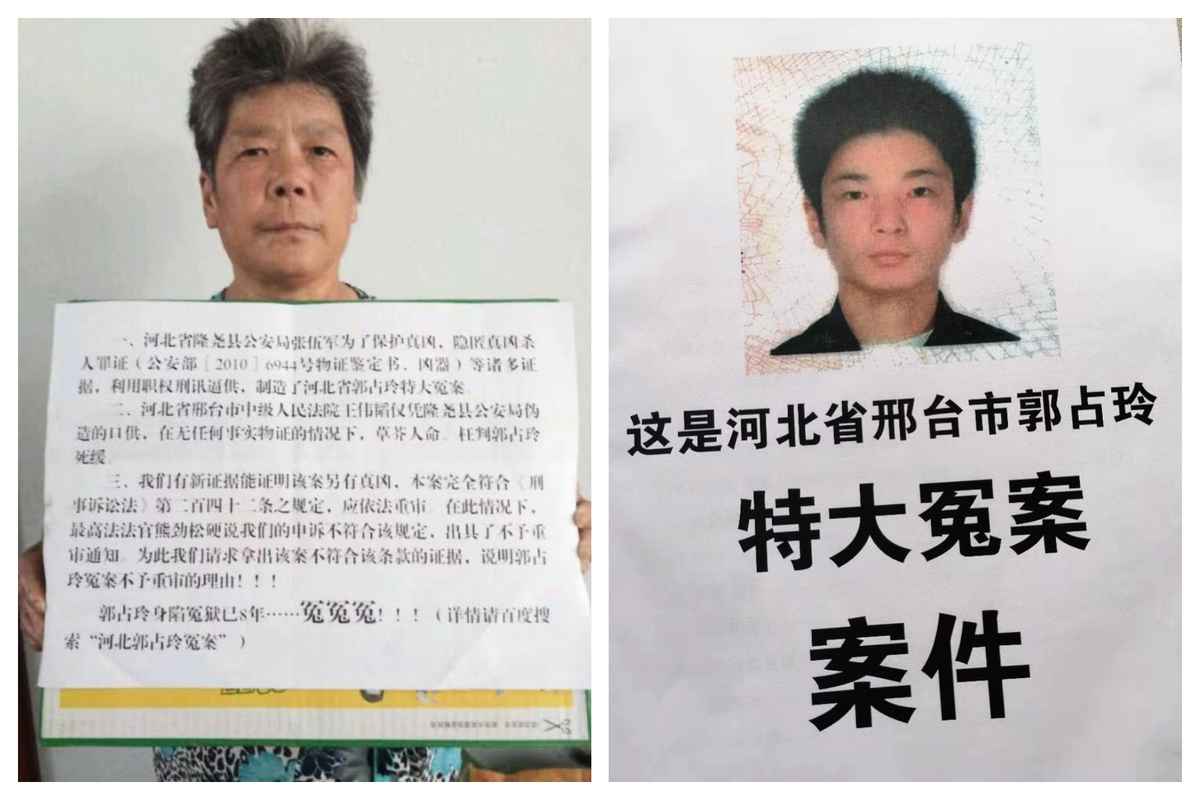 一、河北省隆尧县公安局张伍军为了保护真凶，隐匿真凶杀
人罪证（公安部［2010］6944号物证鉴定书、凶器）等诸多证
据，利用职权刑讯逼供，制造了河北省郭占玲特大冤案。
二、河北省邢台市中级人民法院王伟韬仅凭隆尧县公安局伪
造的口供，在无任何事实物证的情况下，草芥人命。枉判郭占玲
死缓。
三、我们有新证据能证明该案另有真凶，本案完全符合《刑
事诉讼法》第二百四十二条之规定，应依法重审。在此情况下，
最高法法官熊劲松硬说我们的申诉不符合该规定，出具了不予重
审通知。为此我们请求拿出该案不符合该条款的证据，说明郭占
玲冤案不予重审的理由！！！
郭占玲身陷冤狱已8年……冤冤冤！！！（详情请百度搜
索“河北郭占玲冤案”）
这是河北省邢台市郭占玲
特大冤案
案件